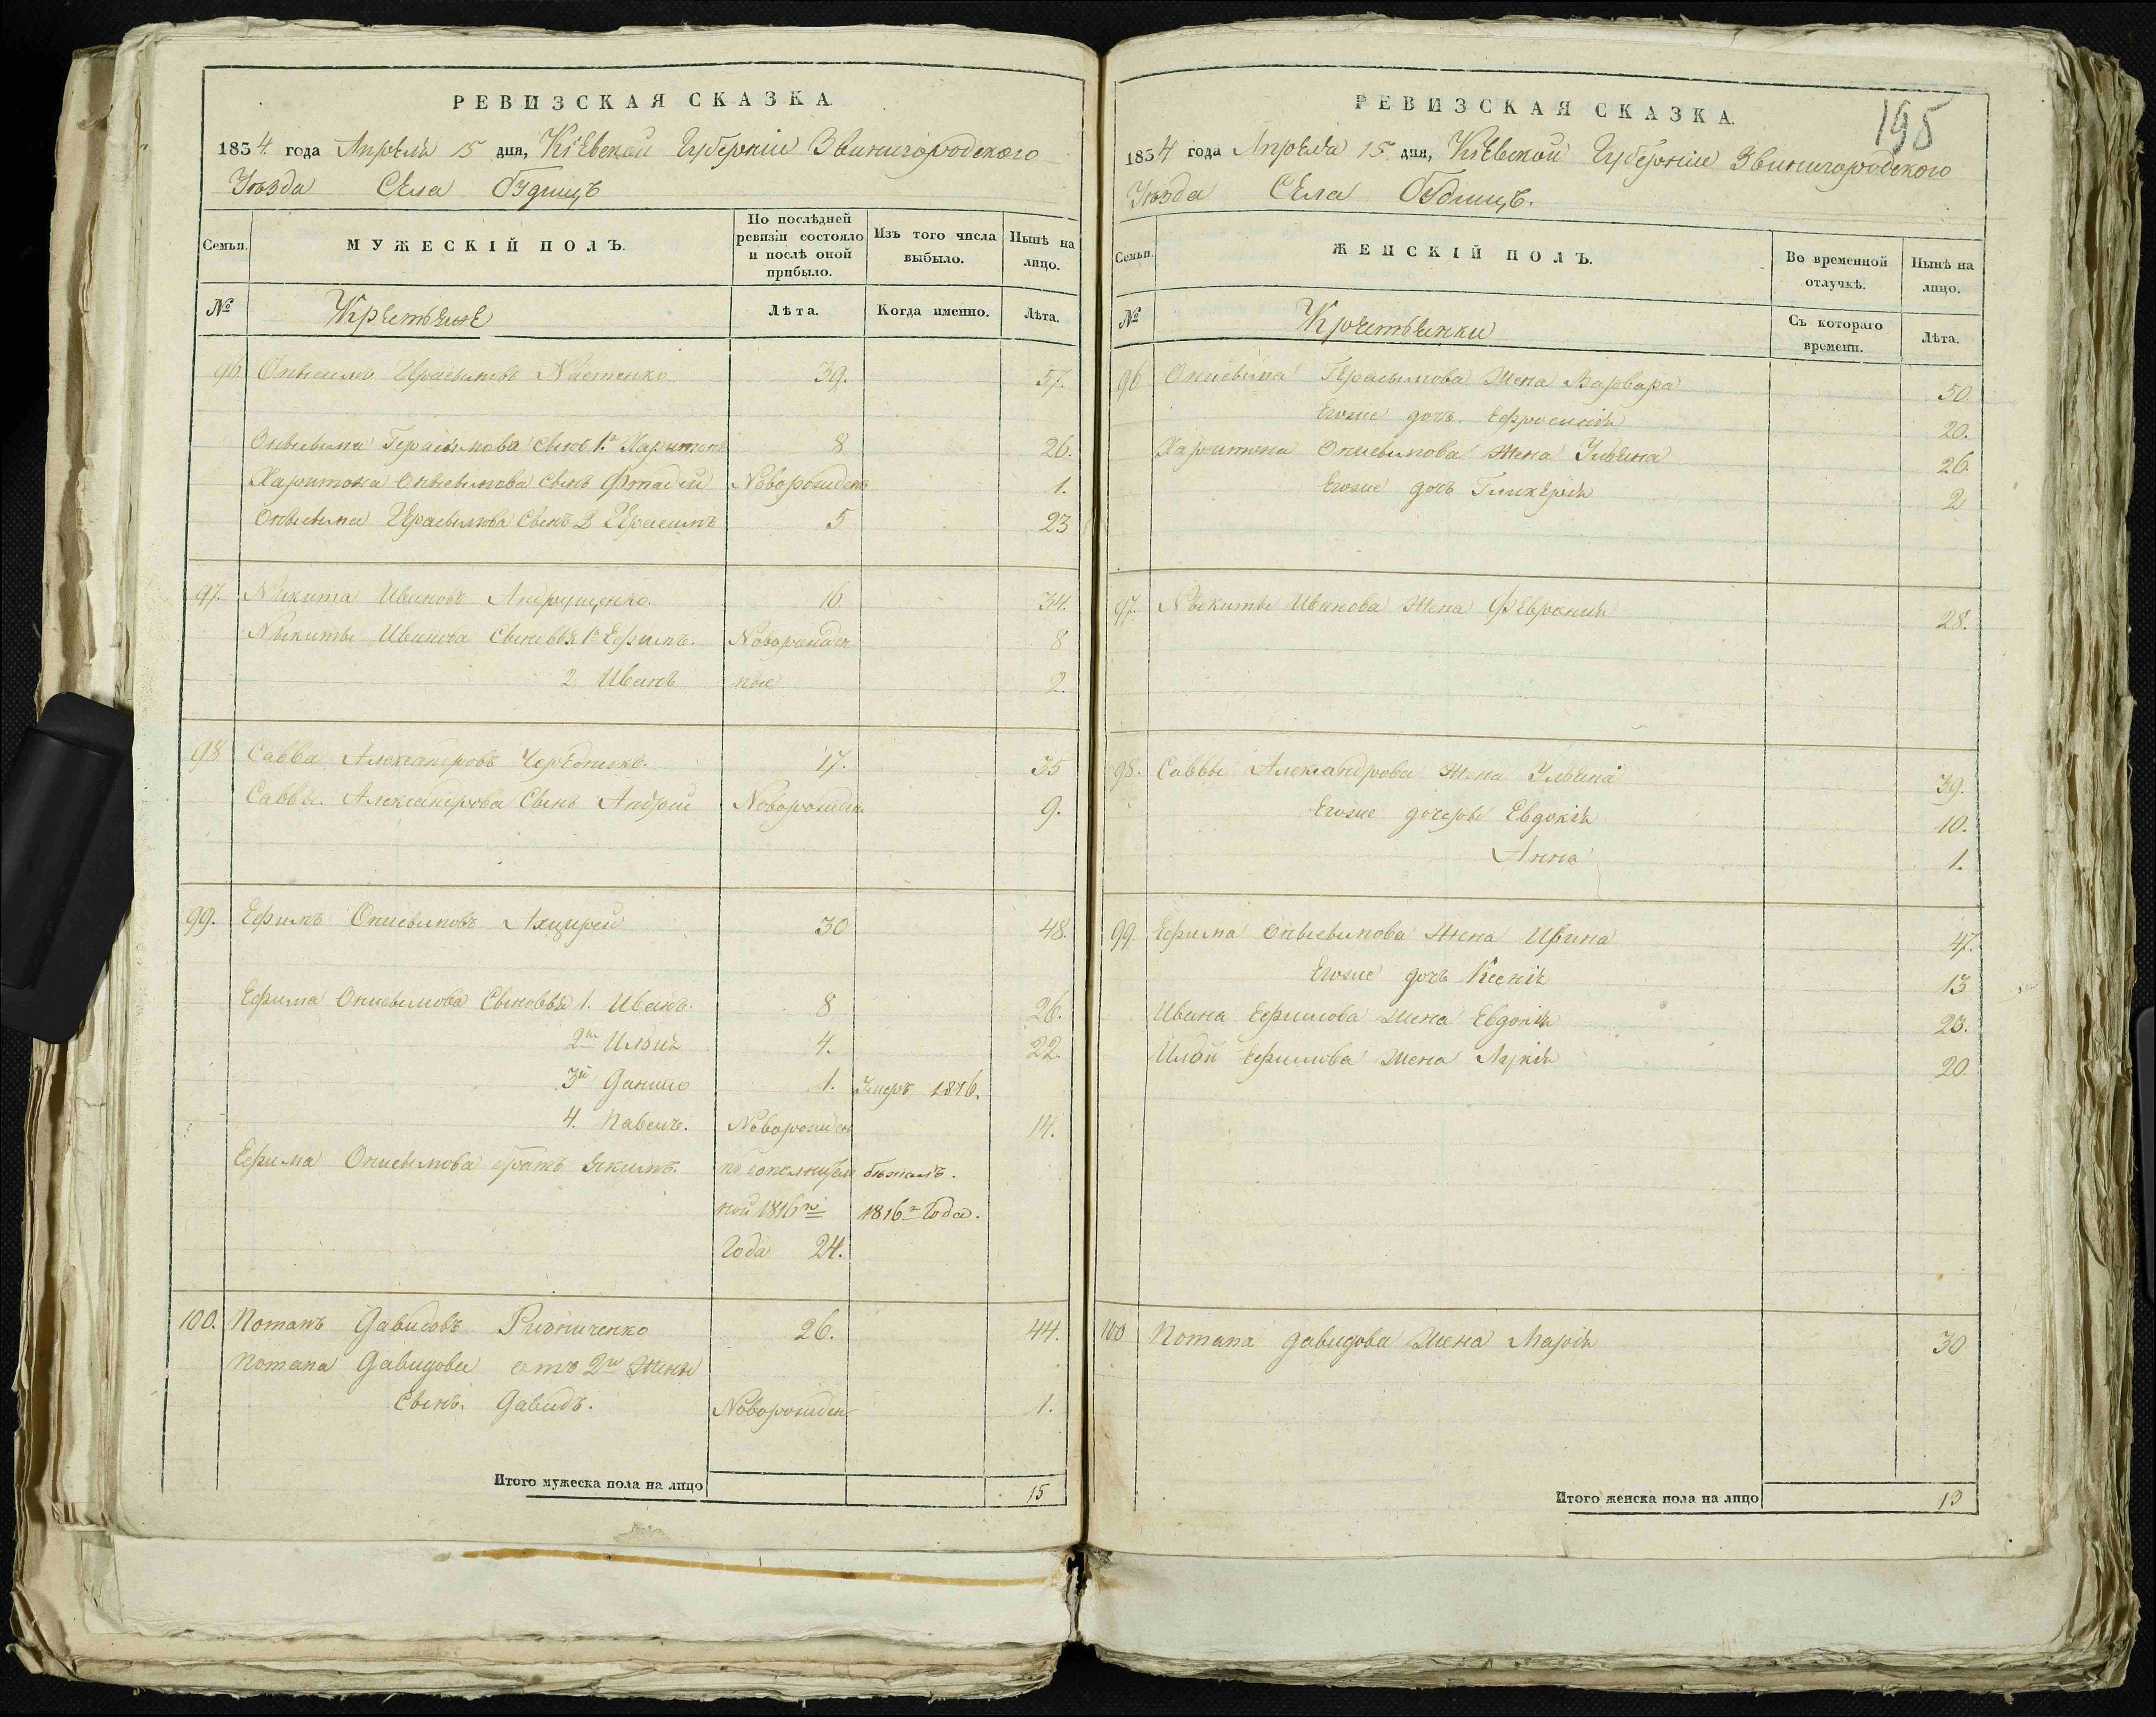 РЕВИЗСКАЯ СКАЗКА
1834 года Апреля 15 дня, Кіевской Губерніи Звинигородского
Уезда Села Будищъ
Семьи.
МУЖЕСКІЙ ПОЛЪ.
По послѣдней ревизіи состояло и послѣ оной прибыло.
Изъ того числа выбыло.
Нынѣ на лицо.
№
Крестьяне
Лѣта.
Когда именно.
Лѣта.
96 Онисимъ Герасимовъ 39. 57.
Онисима Герасимова сынъ 1й Харитонъ 8 26.
Харитона Онисимова сынъ Фтадей Новорожден 1.
Онисима Герасимова Сынъ 2 Герасимъ 5 23
97. Никита Ивановъ Андрущенко. 16 34.
Никиты Иванова Сыновья 1й Ефимъ. Новорожден 8
2 Иванъ ные 2.
98 Савва Александровъ Чередникъ. 17. 35
Саввы Александрова Сынъ Андрей Новорожден 9.
99. Ефимъ Онисимовъ 30 48.
Ефима Онисимова Сыновья 1. Иванъ. 8 26.
2й Илья 4. 22.
3й Данило 1. Умеръ 1816.
4. Павелъ. Новорожден 14.
Ефима Онисимова братъ Якимъ. бежалъ.
ной 1816го 1816го Года.
Года 24.
100. Потапъ Давидовъ 26. 44.
Потапа Давидова отъ 2й жены
Сынъ. Давидъ. Новорожден. 1.
Итого мужеска пола на лицо 15
195
РЕВИЗСКАЯ СКАЗКА.
1834 года Апреля 15 дня, Кіевской Губерніи Звинигородского
Уезда Села Будищъ.
Семьи.
ЖЕНСКІЙ ПОЛЪ.
Во временной отлучкѣ.
Нынѣ на лицо.
№
Крестьянки
Съ котораго времени.
Лѣта.
96 Онисима Герасимова Жена Варвара 50.
Егоже дочь Ефросинія 20.
Харитона Онисимова жена Ульяна 26.
Егоже дочь Гликерія 2
97. Никиты Иванова Жена Февронія 28.
98. Саввы Александрова Жена Ульяна 39.
Егоже дочери Евдокія 10.
Анна 1.
99. Ефима Онисимова Жена Ирина 47.
Егоже дочь Ксенія 13
Ивана Ефимова жена Евдокія 23.
Ильи Ефимова жена Лукія 20.
100 Потапа Давидова Жена Марія 30
Итого женска пола на лицо 13